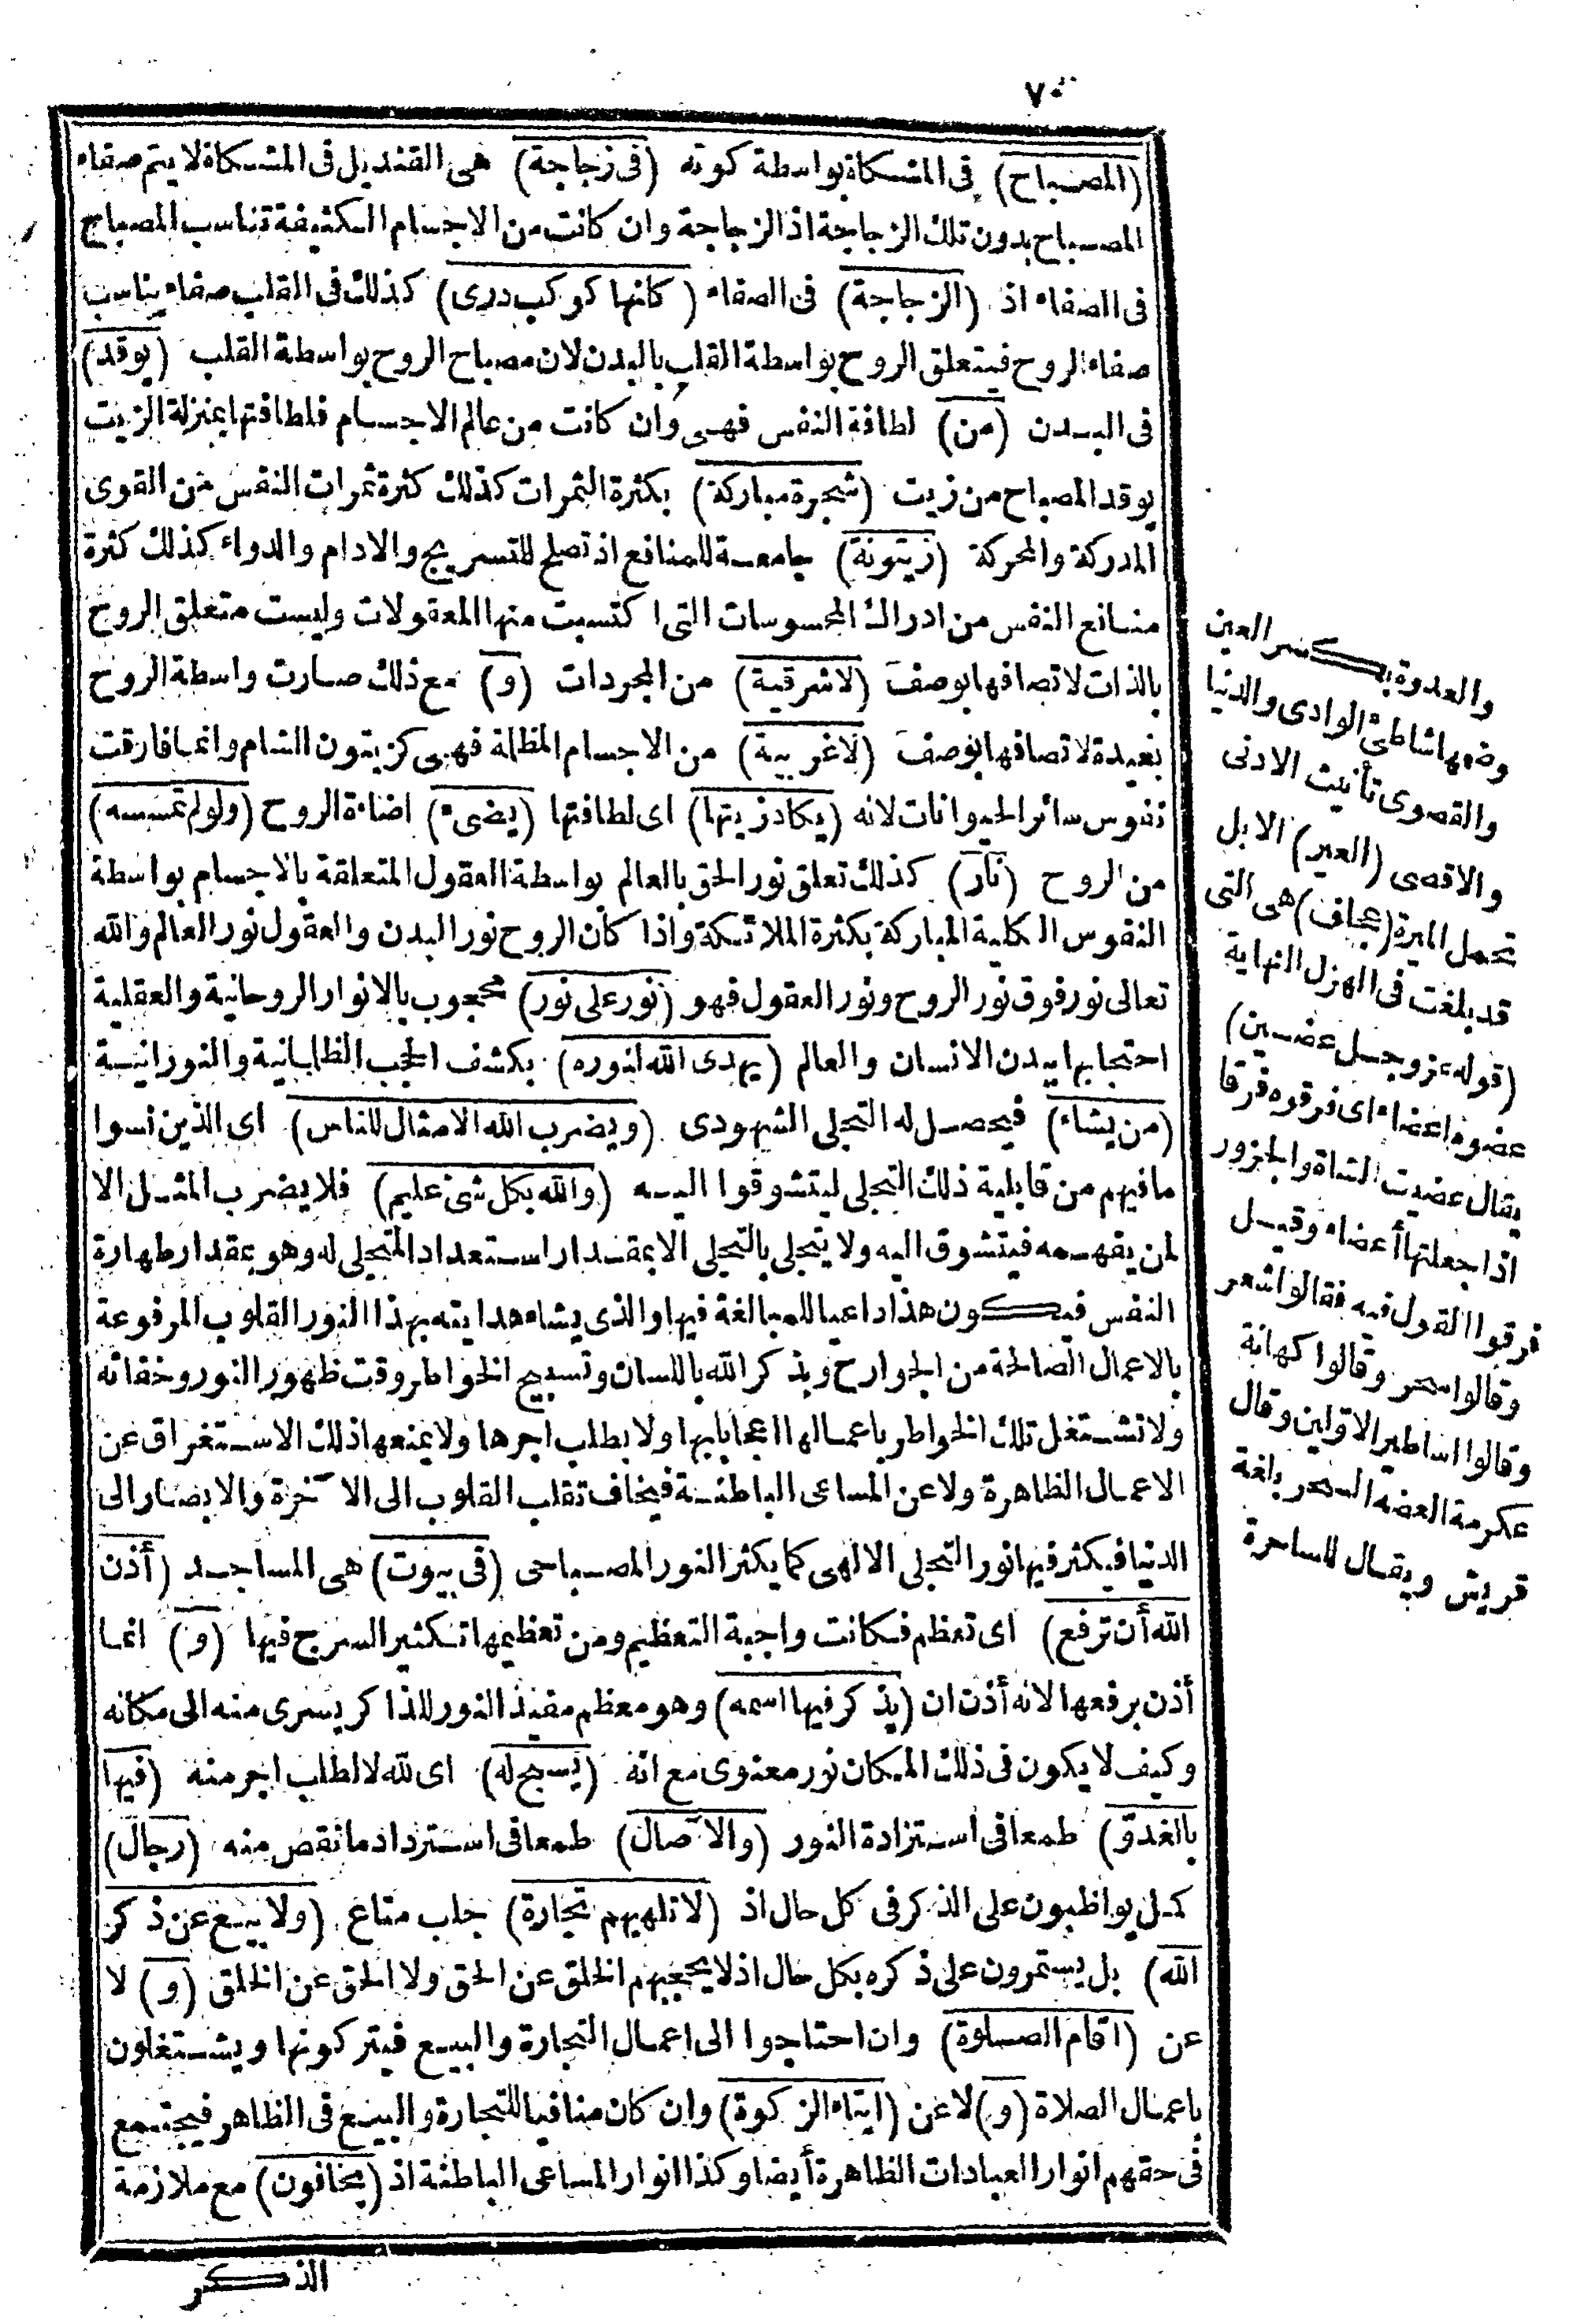 ٧٠
(المصباح) فى المشكاة بواسطة كوته (فى زجاجة) هى القنديل فى المشكاة لا يتم صفاء
المصباح بدون تلك الزجاجة اذ الزجاجة وان كانت من الاجسام الكثيفة تناسب المصباح
فى الصفاء اذ (الزجاجة) فى الصفاء (كانها كوكب درى) كذلك فى القلب صفاء يناسب
صفاء الروح فيتعلق الروح بواسطة القلب بالبدن لان مصباح الروح بواسطة القلب (يوقد)
فى البدن (من) لطافة النفس فهى وان كانت من عالم الاجسام فلطافتها بمنزلة الزيت
يوقد المصباح من زيت (شجرة مباركة) بكثرة الثمرات كذلك كثرة ثمرات النفس من القوى
المدركة والمحركة (زيتونة) جامعة للمنافع اذ تصلح للتسريج والادام والدواء كذلك كثرة
منافع النفس من ادراك المحسوسات التى اكتسبت منها المعقولات وليست متعلق الروح
بالذات لاتصافها بوصف (لاشرقية) من المجردات (و) مع ذلك صارت واسطة الروح
بعيدة لاتصافها بوصف (لاغربية) من الاجسام المظلمة فهى كزيتون الشام وانما فارقت
نفوس سائر الحيوانات لانه (يكاد زيتها) اى لطافتها (يضىء) اضاءة الروح (ولو لم تمسسه)
من الروح (نار) كذلك تعلق نور الحق بالعالم بواسطة العقول المتعلقة بالاجسام بواسطة
النفوس الكلية المباركة بكثرة الملائكة واذا كان الروح نور البدن والعقول نور العالم والله
تعالى نور فوق نور الروح ونور العقول فهو (نور على نور) محجوب بالانوار الروحانية والعقلية
احتجابها ببدن الانسان والعالم (يهدى الله لنوره) بكشف الحجب الظلمانية والنورانية
(من يشاء) فيحصل له التجلى الشهودى (ويضرب الله الامثال للناس) اى الذين نسوا
ما فيهم من قابلية ذلك التجلى ليتشوقوا اليه (والله بكل شئ عليم) فلا يضرب المثل الا
لمن يفهمه فيتشوق اليه ولا يتجلى بالتجلى الا بمقدار استعداد المتجلى له وهو بمقدار طهارة
النفس فيكون هذا داعيا للمبالغة فيها والذى يشاء هدايته بهذا النور القلوب المرفوعة
بالاعمال الصالحة من الجوارح وبذكر الله باللسان وتسبيح الخواطر وقت ظهور النور وخفائه
ولا تشتغل تلك الخواطر باعمالها اعجابا بها ولا بطلب اجرها ولا يمنعها ذلك الاستغراق عن
الاعمال الظاهرة ولا عن المساعى الباطنة فيخاف تقلب القلوب الى الآخرة والابصار الى
الدنيا فيكثر فيها نور التجلى الالهى كما يكثر النور المصباحى (فى بيوت) هى المساجد (أذن
الله أن ترفع) اى تعظم فكانت واجبة التعظيم ومن تعظيمها تكثير السرج فيها (و) انما
أذن برفعها لانه أذن ان (يذكر فيها اسمه) وهو معظم مفيد النور للذاكر يسرى منه الى مكانه
وكيف لا يكون فى ذلك المكان نور معنوى مع انه (يسبح له) اى لله لا لطلب اجر منه (فيها
بالغدوّ) طمعا فى استزادة النور (والآصال) طمعا فى استرداد ما نقص منه (رجال)
كمل يواظبون على الذكر فى كل حال اذ (لا تلهيهم تجارة) جلب متاع (ولا بيع عن ذكر
الله) بل يستمرون على ذكره بكل حال اذ لا يحجبهم الخلق عن الحق ولا الحق عن الخلق (و) لا
عن (اقام الصلوة) وان احتاجوا الى اعمال التجارة والبيع فيتركونها ويشتغلون
باعمال الصلاة (و) لا عن (ايتاء الزكوة) وان كان منافيا للتجارة والبيع فى الظاهر فيجتمع
فى حقهم انوار العبادات الظاهرة أيضا وكذا انوار المساعى الباطنة اذ (يخافون) مع ملازمة
الذكر
والعدوة بكسر العين
وضمها شاطئ الوادى والدنيا
والقصوى تأنيث الادنى
والاقصى (العير) الابل
تحمل الميرة (عجاف) هى التى
قد بلغت فى الهزل النهاية
(قوله عز وجل عضين)
عضوه اعضاء اى فرقوه فرقا
يقال عضيت الشاة والجزور
اذا جعلتها أعضاء وقيل
فرقوا القول فيه فقالوا شعر
وقالوا سحر وقالوا كهانة
وقالوا اساطير الاولين وقال
عكرمة العضه السحر بلغة
قريش ويقال للساحرة